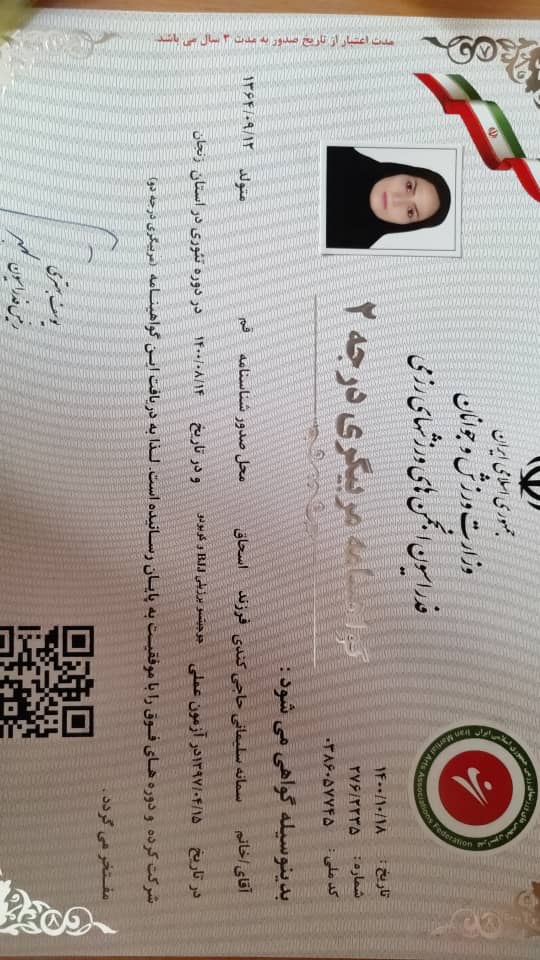 جمهوری اسلامی ایران
وزارت ورزش و جوانان
فدراسیون انجمن های ورزشهای رزمی
Iran Martial Arts Associations Federation
تاریخ : ۱۴۰۰/۱۰/۱۸
شماره : ۲۷۶/۲۲۳۵
کد ملی : ۰۳۸۶۰۵۷۷۴۵
گواهینامه مربیگری درجه ۲
بدینوسیله گواهی می شود :
آقای/خانم سمانه سلیمانی حاجی کندی فرزند اسحاق محل صدور شناسنامه قم متولد ۱۳۶۴/۰۹/۱۲
در تاریخ ۱۳۹۷/۰۴/۱۵در آزمون عملی جوجیتسو برزیلی BJJ و در تاریخ ۱۴۰۰/۰۸/۱۴ در دوره تئوری در استان زنجان
شرکت کرده و دوره های فوق را با موفقیت به پایان رسانیده است. لذا به دریافت این گواهینامه (مربیگری درجه دو)
مفتخر می گردد .
رئیس فدراسیون
مدت اعتبار از تاریخ صدور به مدت ۳ سال می باشد.